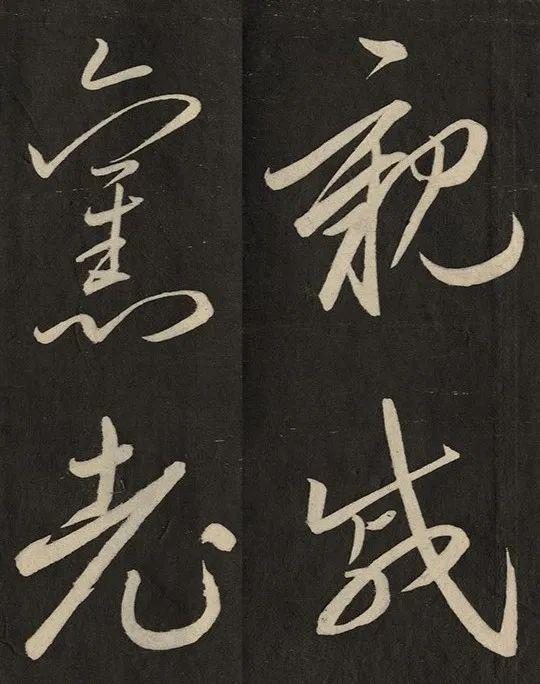 親戚
舊老